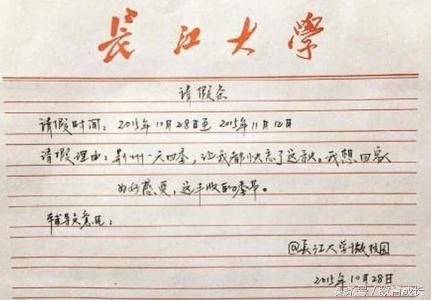 長江大學
请假条
请假时间：2015年10月28日至2015年11月12日
请假理由：荆州一天四季，让我都快忘了这秋。我想回家
好好感受，这丰收的季节。
辅导员意见：
@长江大学微校园
2015年10月28日
头条号/教育成长